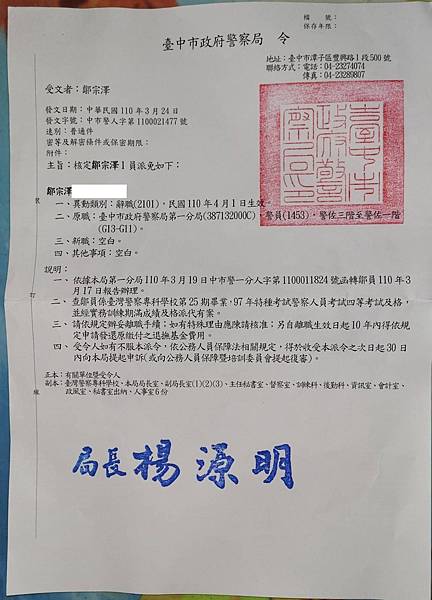 檔　號：
保存年限：
臺中市政府警察局　令
地址：臺中市潭子區豐興路1段500號
聯絡方式：電話：04-23274074
傳真：04-23289807
受文者：鄔宗澤
發文日期：中華民國110年3月24日
發文字號：中市警人字第1100021477號
速別：普通件
密等及解密條件或保密期限：
附件：
主旨：核定鄔宗澤1員派免如下：
鄔宗澤
一、異動類別：辭職(2101)，民國110年4月1日生效。
二、原職：臺中市政府警察局第一分局(387132000C)，警員(1453)，警佐三階至警佐一階
(G13-G11)。
三、新職：空白。
四、其他事項：空白。
說明：
一、依據本局第一分局110年3月19日中市警一分人字第1100011824號函轉鄔員110年3
月17日報告辦理。
二、查鄔員係臺灣警察專科學校第25期畢業，97年特種考試警察人員考試四等考試及格，
並經實務訓練期滿成績及格派代有案。
三、請依規定辦妥離職手續；如有特殊理由應陳請核准；另自離職生效日起10年內得依規
定申請發還原繳付之退撫基金費用。
四、受令人如有不服本派令，依公務人員保障法相關規定，得於收受本派令之次日起30日
內向本局提起申訴(或向公務人員保障暨培訓委員會提起復審)。
正本：有關單位暨受令人
副本：臺灣警察專科學校、本局局長室、副局長室(1)(2)(3)、主任秘書室、督察室、訓練科、後勤科、資訊室、會計室、
政風室、秘書室出納、人事室6份
局長楊源明
裝
訂
線
臺中市政府警察局印